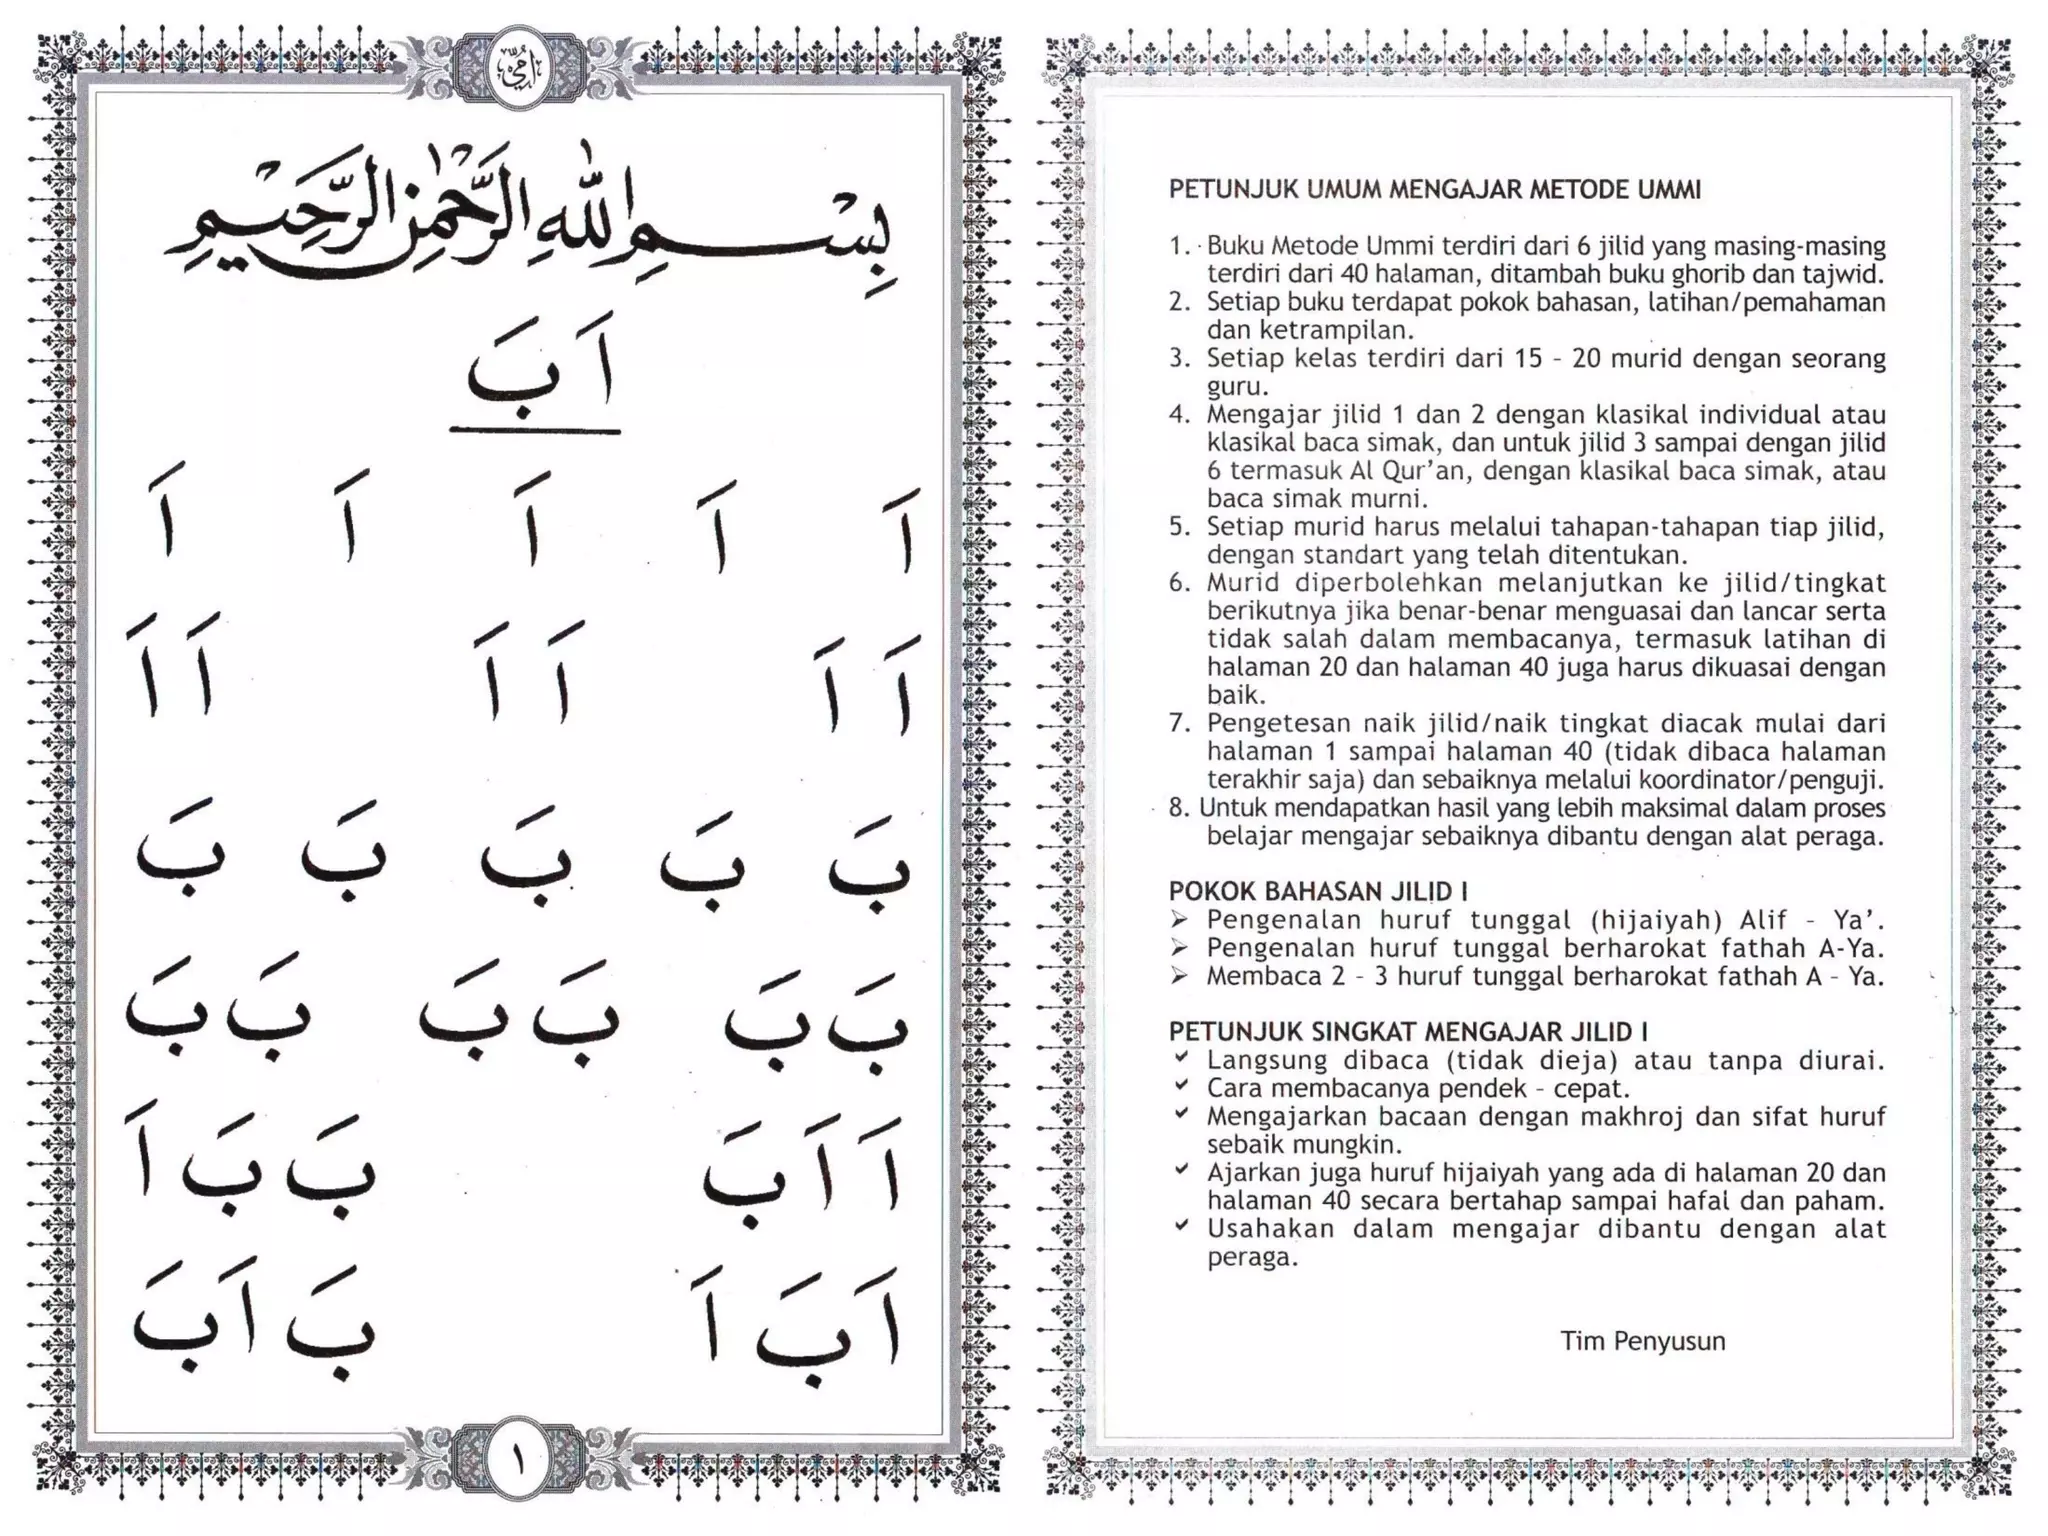 أُمِّي
بِسْمِ اللهِ الرَّحْمٰنِ الرَّحِيْمِ
اَ بَ
اَ اَ اَ اَ اَ
اَ اَ اَ اَ اَ اَ
بَ بَ بَ بَ بَ
بَ بَ بَ بَ بَ بَ
اَ اَ بَ بَ بَ اَ
اَ بَ اَ بَ اَ بَ
١
PETUNJUK UMUM MENGAJAR METODE UMMI
1. Buku Metode Ummi terdiri dari 6 jilid yang masing-masing
terdiri dari 40 halaman, ditambah buku ghorib dan tajwid.
2. Setiap buku terdapat pokok bahasan, latihan/pemahaman
dan ketrampilan.
3. Setiap kelas terdiri dari 15 - 20 murid dengan seorang
guru.
4. Mengajar jilid 1 dan 2 dengan klasikal individual atau
klasikal baca simak, dan untuk jilid 3 sampai dengan jilid
6 termasuk Al Qur'an, dengan klasikal baca simak, atau
baca simak murni.
5. Setiap murid harus melalui tahapan-tahapan tiap jilid,
dengan standart yang telah ditentukan.
6. Murid diperbolehkan melanjutkan ke jilid/tingkat
berikutnya jika benar-benar menguasai dan lancar serta
tidak salah dalam membacanya, termasuk latihan di
halaman 20 dan halaman 40 juga harus dikuasai dengan
baik.
7. Pengetesan naik jilid/naik tingkat diacak mulai dari
halaman 1 sampai halaman 40 (tidak dibaca halaman
terakhir saja) dan sebaiknya melalui koordinator/penguji.
8. Untuk mendapatkan hasil yang lebih maksimal dalam proses
belajar mengajar sebaiknya dibantu dengan alat peraga.
POKOK BAHASAN JILID I
➢ Pengenalan huruf tunggal (hijaiyah) Alif - Ya'.
➢ Pengenalan huruf tunggal berharokat fathah A-Ya.
➢ Membaca 2 - 3 huruf tunggal berharokat fathah A - Ya.
PETUNJUK SINGKAT MENGAJAR JILID I
✔ Langsung dibaca (tidak dieja) atau tanpa diurai.
✔ Cara membacanya pendek - cepat.
✔ Mengajarkan bacaan dengan makhroj dan sifat huruf
sebaik mungkin.
✔ Ajarkan juga huruf hijaiyah yang ada di halaman 20 dan
halaman 40 secara bertahap sampai hafal dan paham.
✔ Usahakan dalam mengajar dibantu dengan alat
peraga.
Tim Penyusun